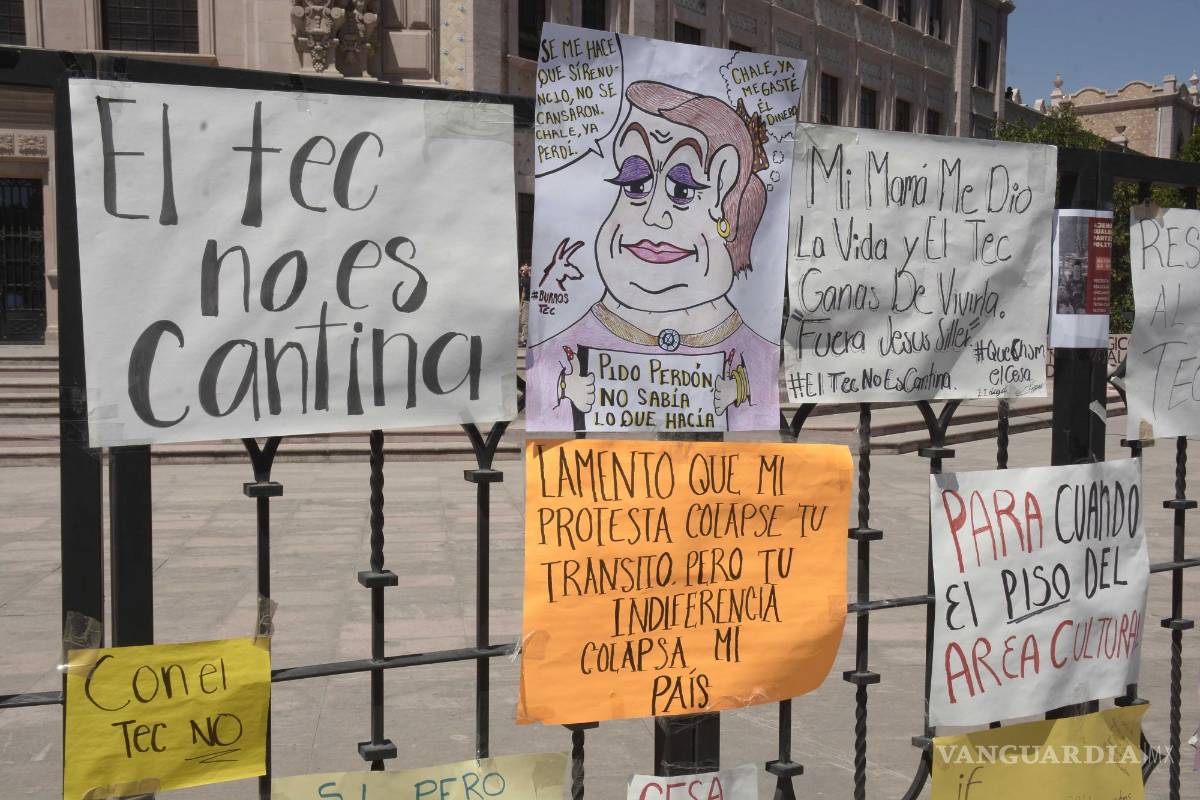 El tec
no es
Cantina
SE ME HACE
QUE SI RENU-
NCIO, NO SE
CANSARON.
CHALE, YA
PERDÍ.
CHALE, YA
ME GASTÉ
EL
DINERO
#BURROS
TEC
PIDO PERDÓN
NO SABÍA
LO QUE HACÍA
Mi Mamá Me Dio
La Vida y El Tec
Ganas De Vivirla.
Fuera Jesus Siller
#QueChsm
elCosa
#El Tec No Es Cantina.
RES
AL
TEC
LAMENTO QUE MI
PROTESTA COLAPSE TU
TRANSITO. PERO TU
INDIFERENCIA
COLAPSA MI
PAÍS
PARA CUANDO
El PISO DEL
AREA CULTURAl
Con el
Tec NO
SI PERO
CESA
if
VANGUARDIA MX